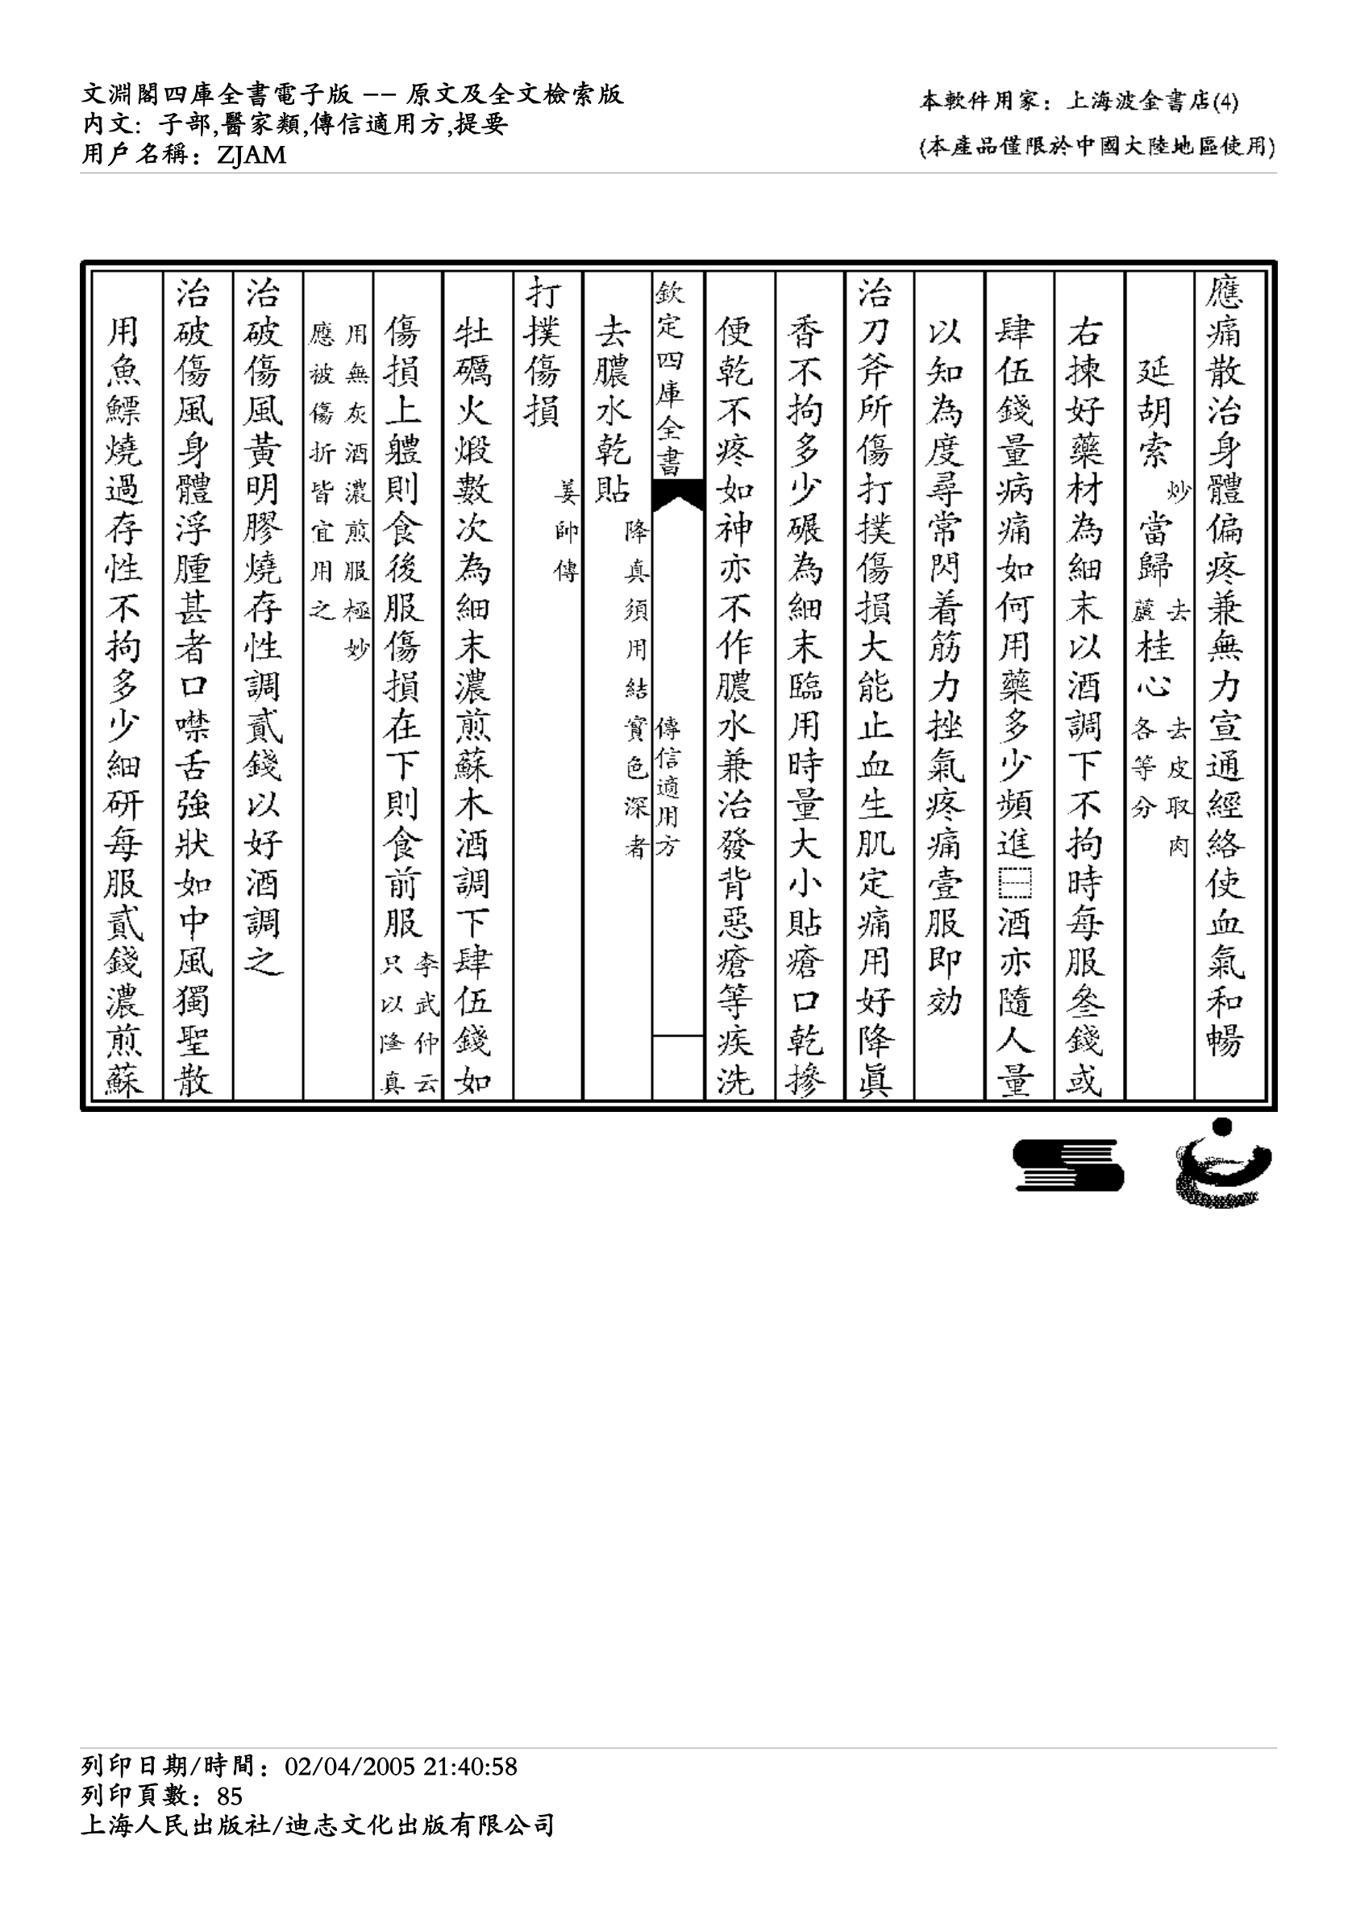 文淵閣四庫全書電子版 -- 原文及全文檢索版
內文: 子部,醫家類,傳信適用方,提要
用戶名稱: ZJAM
本軟件用家: 上海波金書店(4)
(本產品僅限於中國大陸地區使用)
應痛散治身體偏疼兼無力宣通經絡使血氣和暢
延胡索炒當歸去蘆桂心去皮取肉各等分
右揀好藥材為細末以酒調下不拘時每服叁錢或
肆伍錢量病痛如何用藥多少頻進酒亦隨人量
以知為度尋常閃着筋力挫氣疼痛壹服即効
治刀斧所傷打撲傷損大能止血生肌定痛用好降真
香不拘多少碾為細末臨用時量大小貼瘡口乾摻
便乾不疼如神亦不作膿水兼治發背惡瘡等疾洗
欽定四庫全書
傳信適用方
去膿水乾貼降真須用結實色深者
打撲傷損姜帥傳
牡礪火煅數次為細末濃煎蘇木酒調下肆伍錢如
傷損上體則食後服傷損在下則食前服李武仲云只以降真
用無灰酒濃煎服極妙應被傷折皆宜用之
治破傷風黃明膠燒存性調貳錢以好酒調之
治破傷風身體浮腫甚者口噤舌強狀如中風獨聖散
用魚鰾燒過存性不拘多少細研每服貳錢濃煎蘇
列印日期/時間: 02/04/2005 21:40:58
列印頁數: 85
上海人民出版社/迪志文化出版有限公司